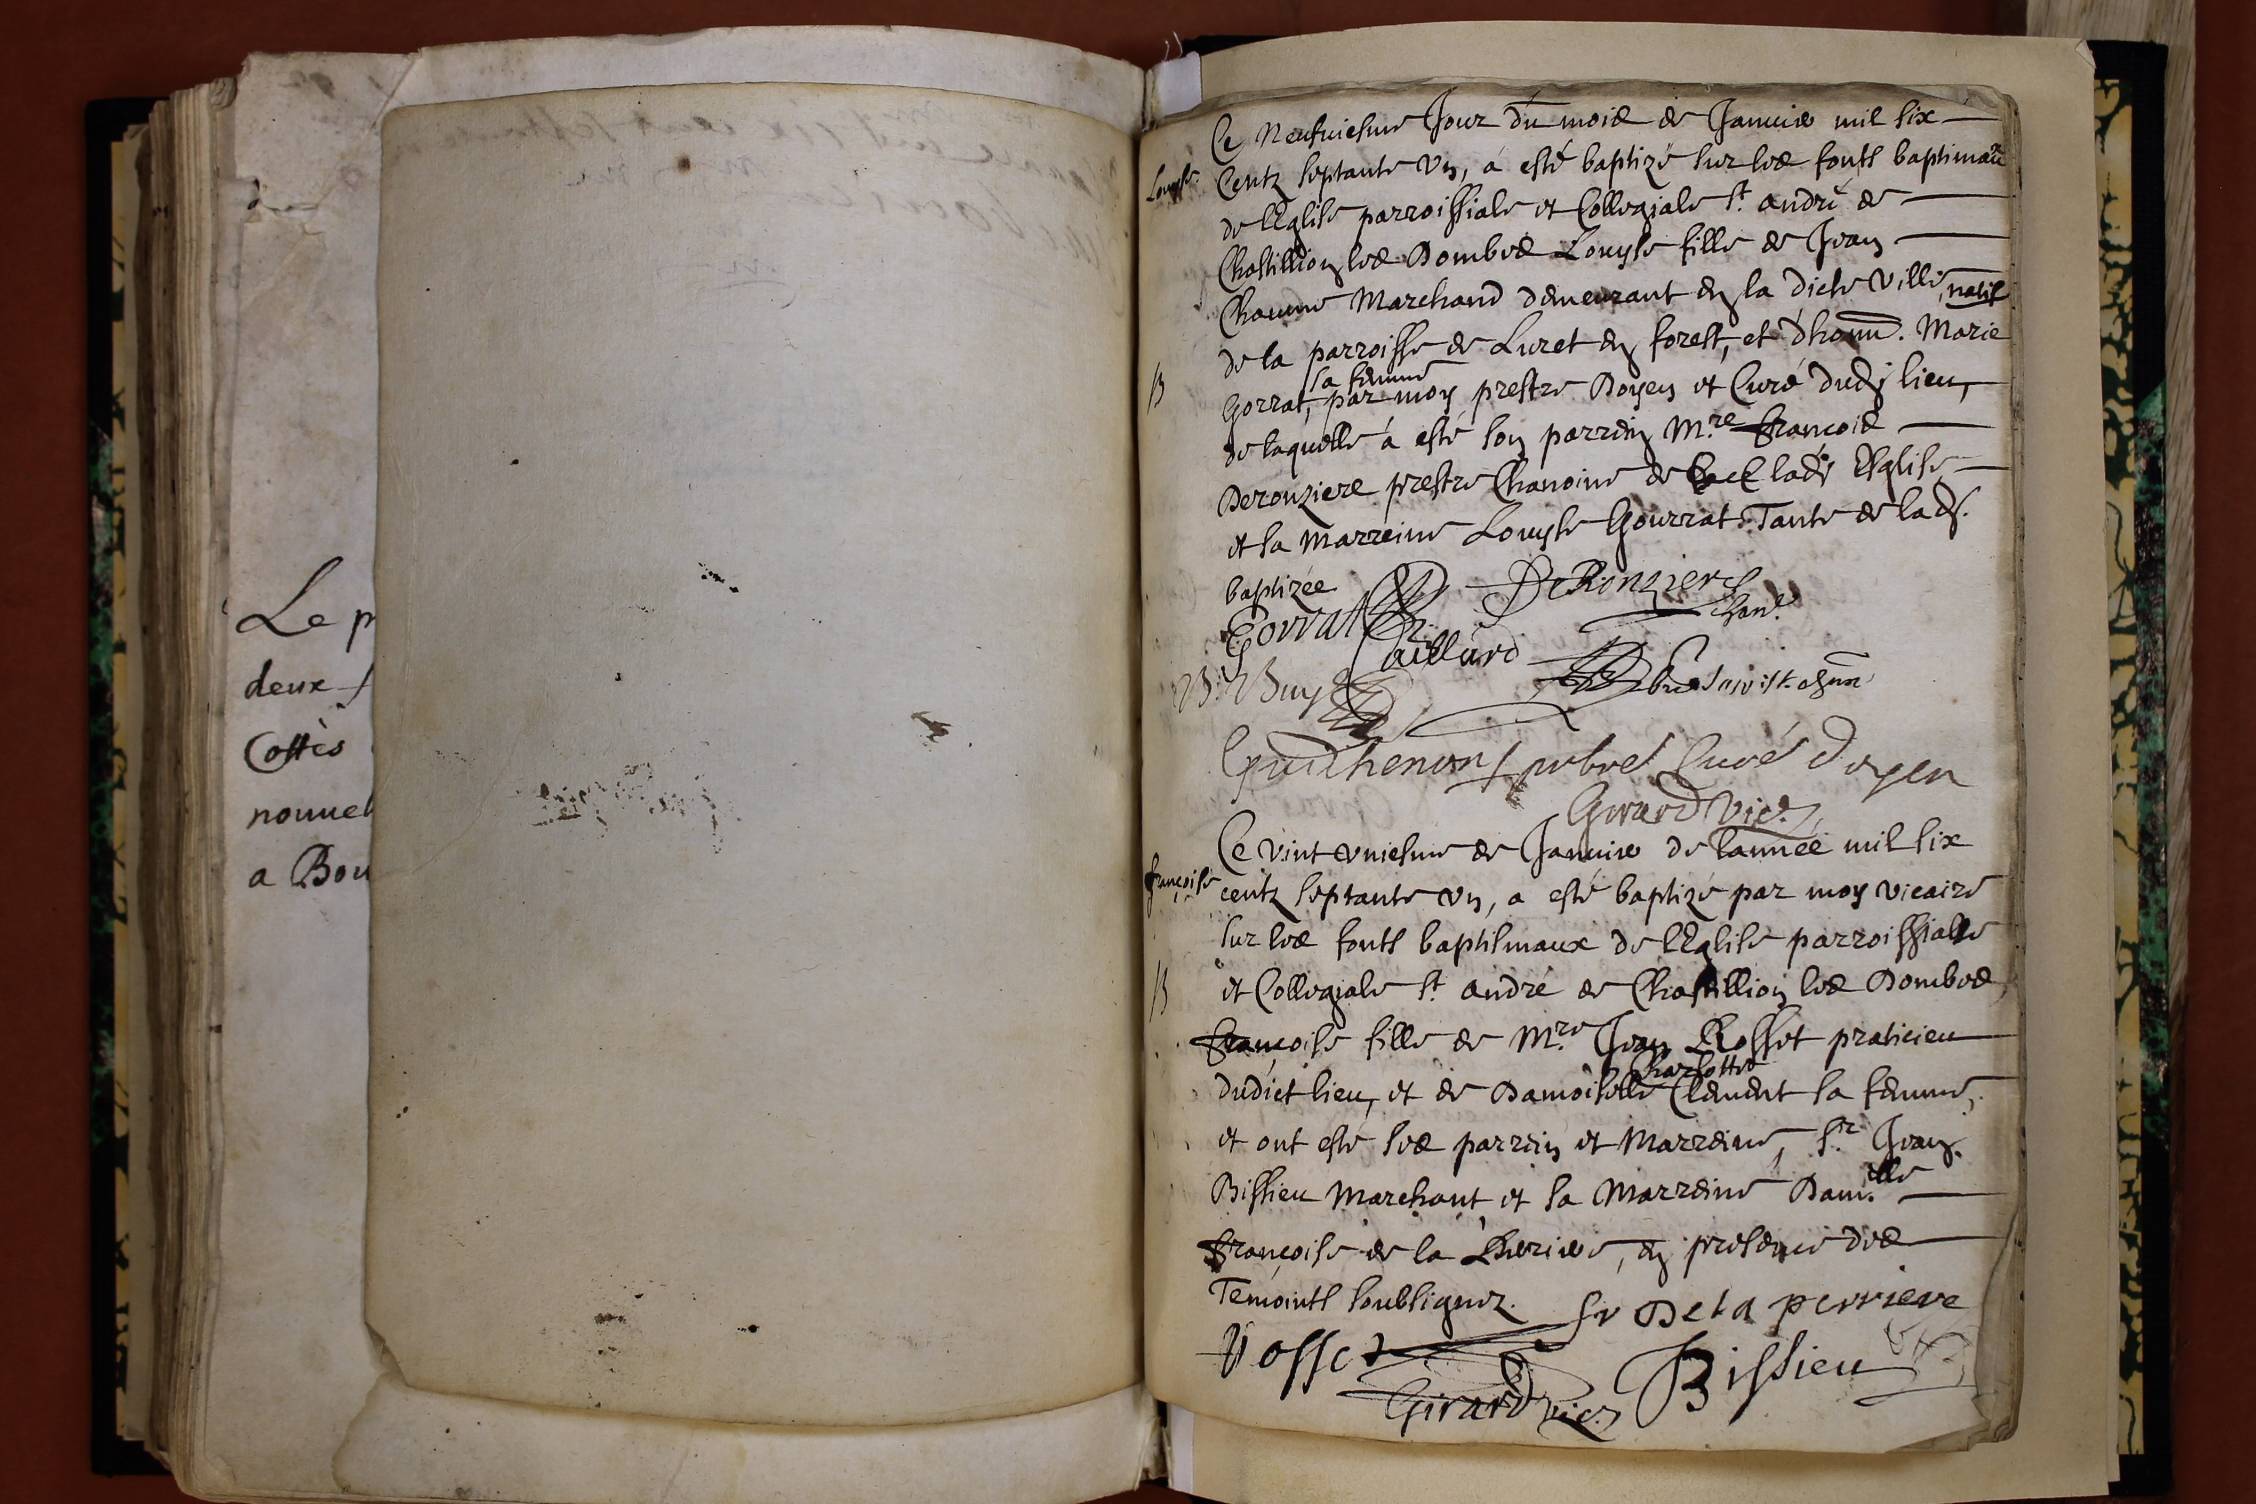 Le p
deux
Cottès
nouuel
a Bou
Ce Neufuiesme Jour du mois de Januier mil six
Louyse.
Centz septante Vn, à esté baptizé sur les fonts baptimaux
de lEglise parroissiale et Collegiale St. andré de
Chastillion les Dombes Louyse fille de Jean
Chaume Marchand demeurant en la dicte Ville, natif
de la parroisse de Luret en forest, et d'honn. Marie
sa femme
B
Gorrat, par moy prestre Doyen et Curé dud. lieu,
de laquelle à esté son parrein Mre. François
Deronziere prestre Chanoine de lad. Eglise
et la Marreine Louyse Gourrat Tante de lad.
baptizée
DeRonziere
chane.
Gorrat
Caillard
B. Buy
Guichenon prbre Curé doyen
Girard vic.
Ce vint vniesme de Januier de lannée mil six
françoise
centz septante vn, a esté baptizé par moy vicaire
sur les fonts baptismaux de lEglise parroissialle
B
et Collegiale St. andré de Chastillion les Dombes,
françoise fille de Mre. Jean Rosset praticien
Charlotte
dudict lieu, et de Damoiselle Clement sa femme,
et ont esté les parrein et Marreine, Sr. Jean
Bissieu Marchant et la Marreine Dam.lle
françoise de la , en presence des
Temoints soubsignez.
fr De La perriere
Rosset
Bissieu
Girard vic.